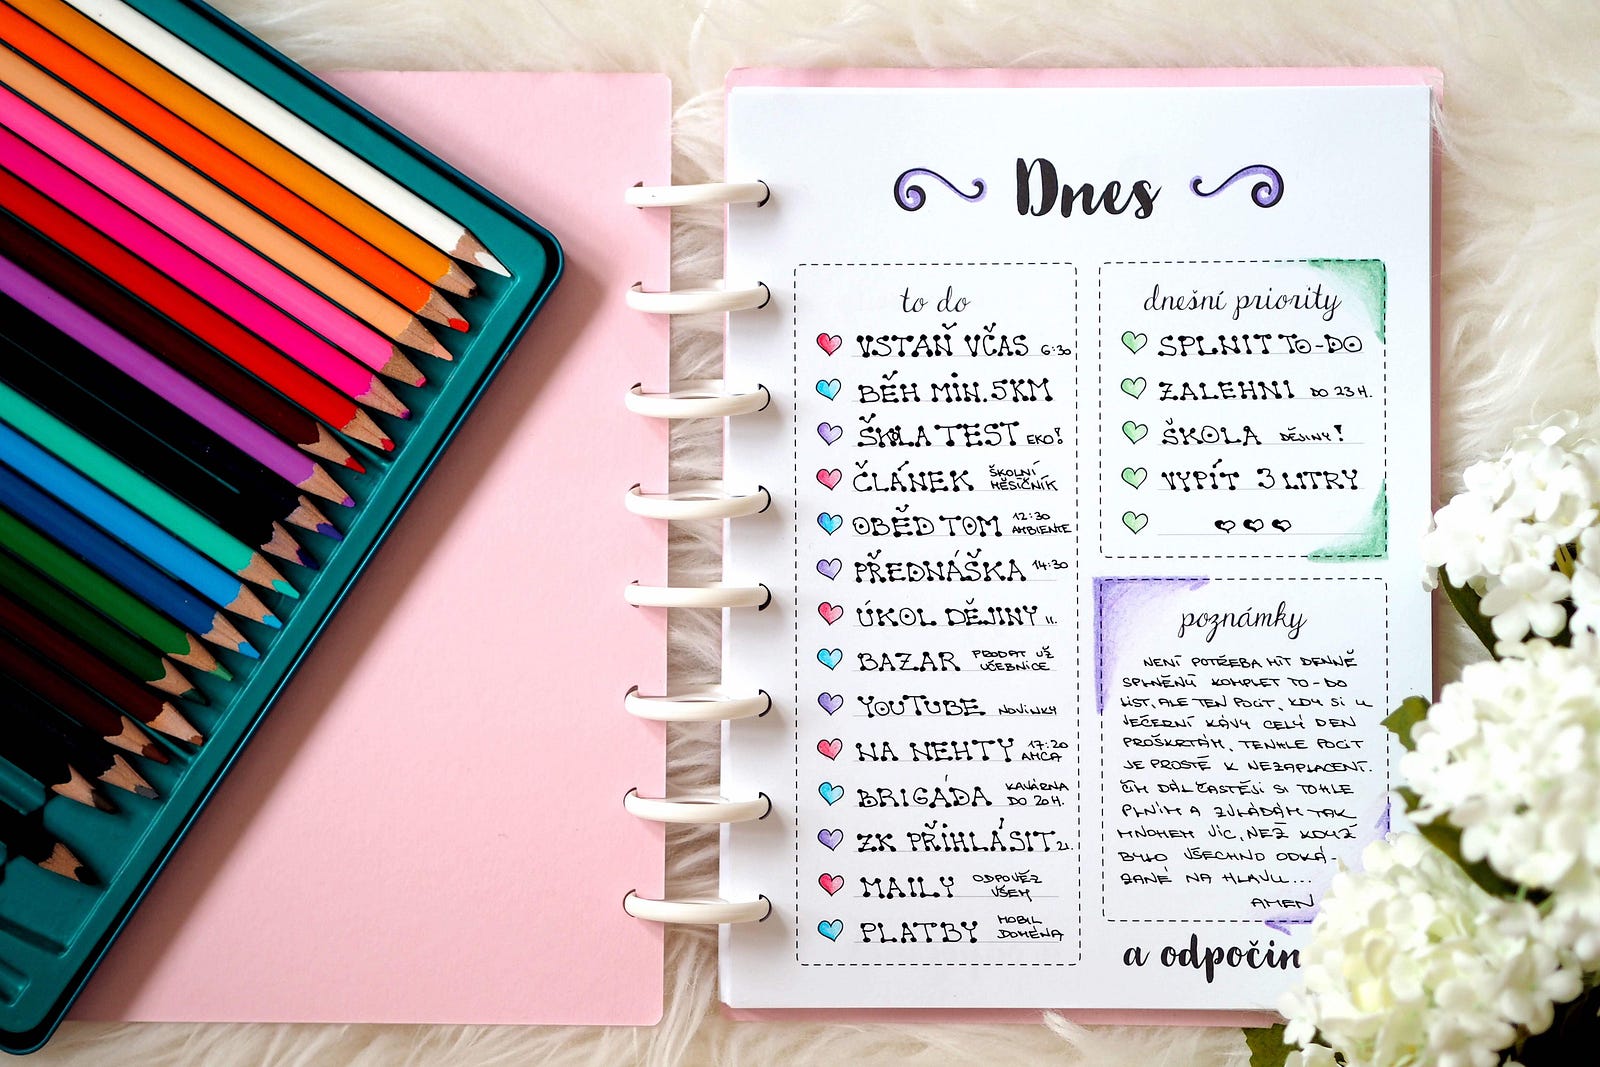 Dnes
to do
VSTAŇ VČAS 6:30
BĚH MIN. 5KM
ŠKOLA TEST EKO!
ČLÁNEK ŠKOLNÍ MĚSÍČNÍK
OBĚD TOM 12:30 AMBIENTE
PŘEDNÁŠKA 14:30
ÚKOL DĚJINY II.
BAZAR PRODAT UŽ UČEBNICE
YOUTUBE NOVINKY
NA NEHTY 17:20 AMCA
BRIGÁDA KAVÁRNA DO 20H.
ZK PŘIHLÁSIT 21.
MAILY ODPOVĚZ VŠEM
PLATBY MOBIL DOMÉNA
dnešní priority
SPLNIT TO-DO
ZALEHNI DO 23H.
ŠKOLA DĚJINY!
VYPÍT 3 LITRY
poznámky
NENÍ POTŘEBA MÍT DENNĚ
SPLNĚNÝ KOMPLET TO-DO
LIST, ALE TEN POCIT, KDY SI U
VEČERNÍ KÁVY CELÝ DEN
PROŠKRTÁM, TENHLE POCIT
JE PROSTĚ K NEZAPLACENÍ.
ČÍM DÁL ČASTĚJI SI TOHLE
PLNÍM A ZVLÁDÁM TAK
MNOHEM VÍC, NEŽ KDYŽ
BYLO VŠECHNO ODKÁ-
ZANÉ NA HLAVU...
AMEN
a odpočin